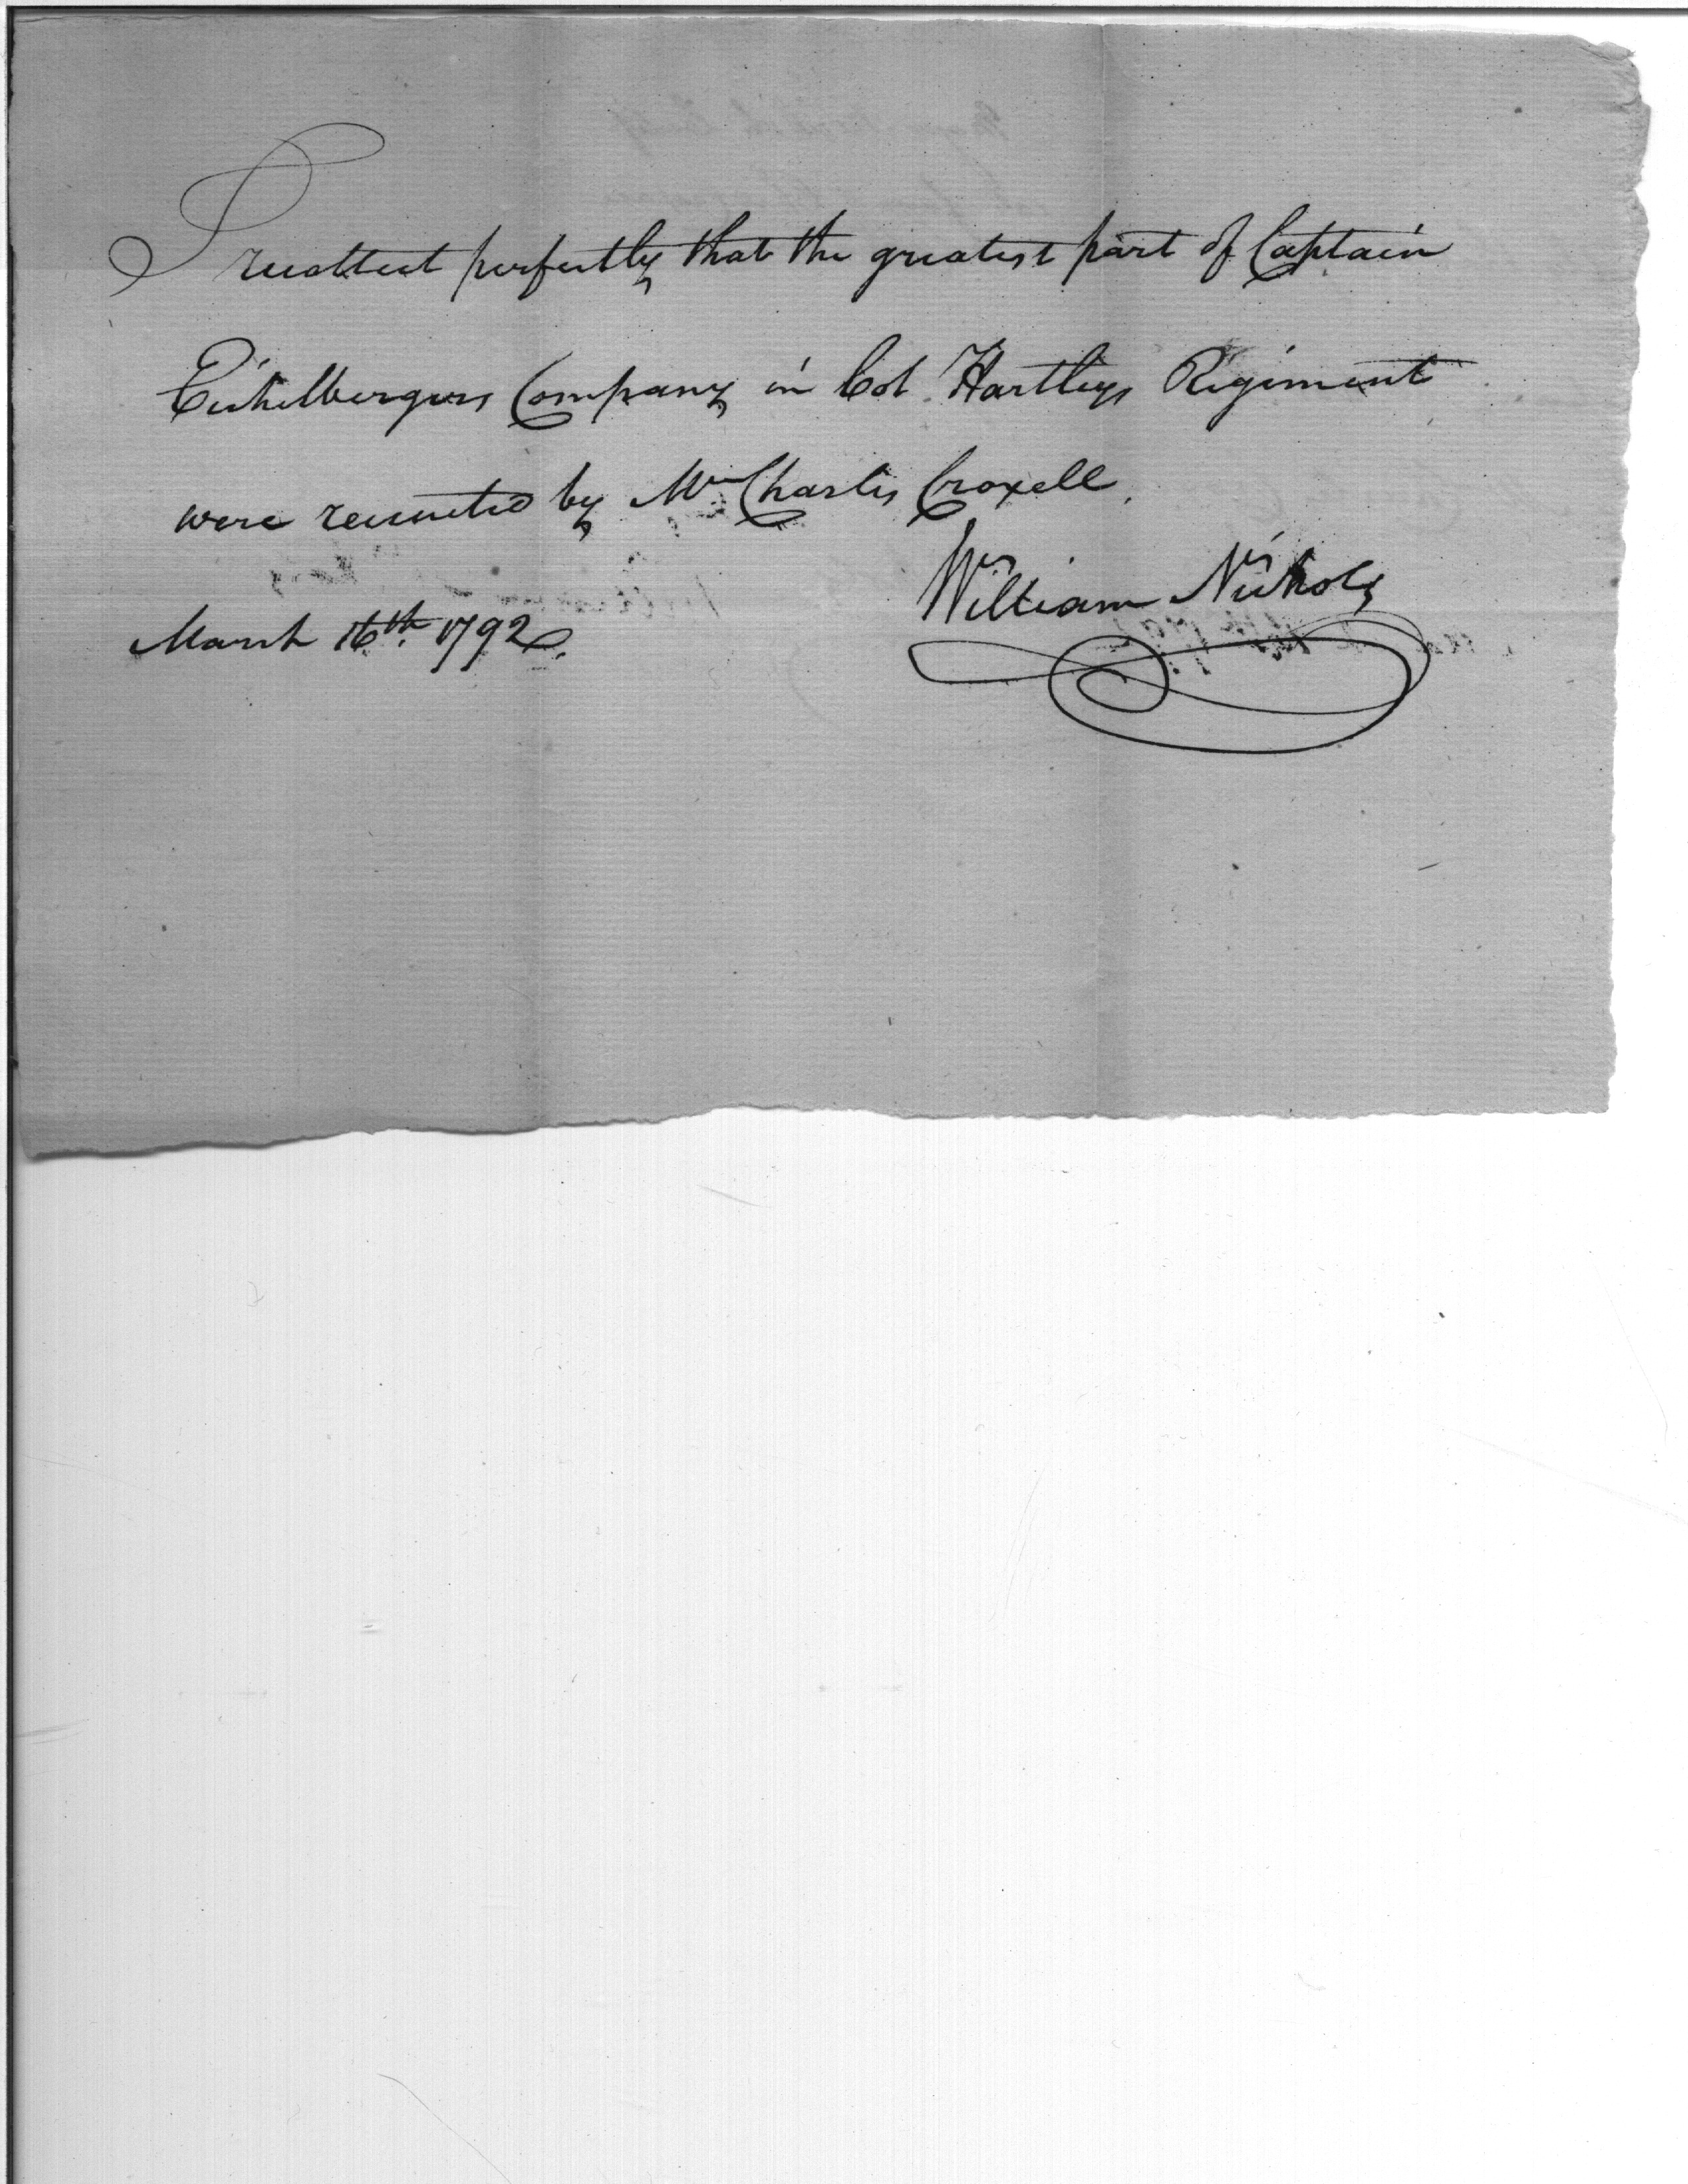 I recollect perfectly that the greatest part of Captain
Eichelbergers Company in Col Hartleys Regiment
were recruited by Mr Charles Croxell.
William Nichols
March 16th. 1792.